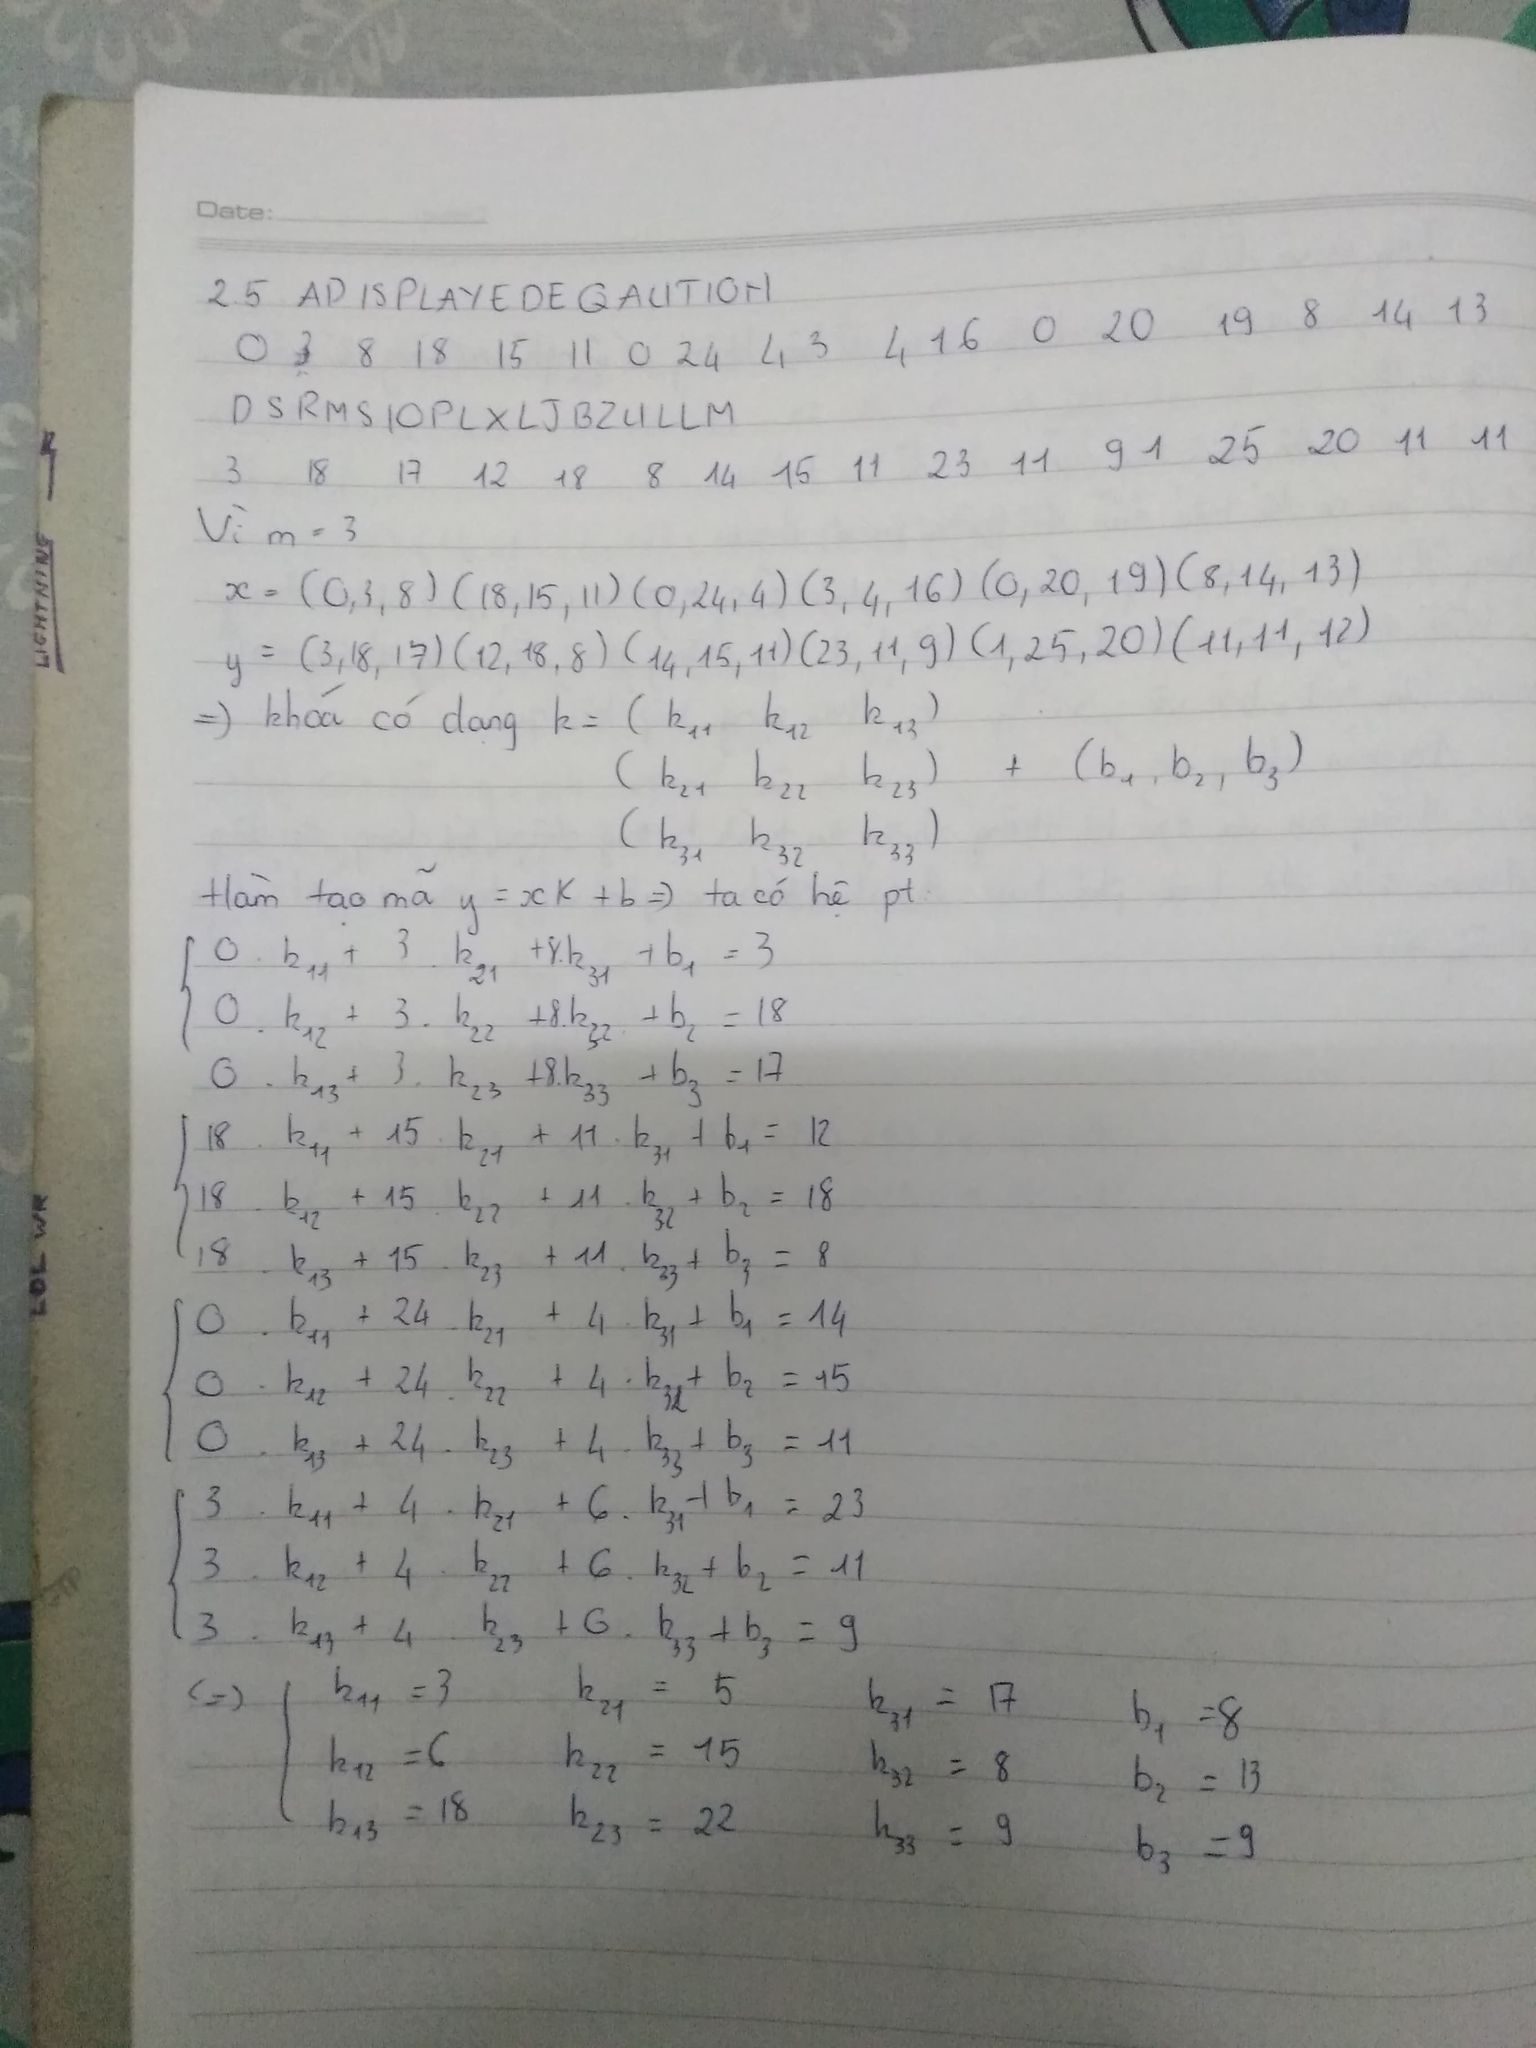 Date:
2.5 ADISPLAYEDEQAUTION
0 3 8 18 15 11 0 24 4 3 4 16 0 20 19 8 14 13
DSRMSIOPLXLJBZULLM
3 18 17 12 18 8 14 15 11 23 11 9 1 25 20 11 11
Vì m = 3
x = (0,3,8) (18,15,11) (0,24,4) (3,4,16) (0,20,19) (8,14,13)
y = (3,18,17) (12,18,8) (14,15,11) (23,11,9) (1,25,20) (11,11,12)
=) khoá có dạng k = ( k11 k12 k13 )
( k21 k22 k23 ) + (b1, b2, b3)
( k31 k32 k33 )
Hàm tạo mã y = xK + b => ta có hệ pt
0 . k11 + 3 . k21 + 8.k31 + b1 = 3
0 . k12 + 3 . k22 + 8.k32 + b2 = 18
0 . k13 + 3 . k23 + 8.k33 + b3 = 17
18 . k11 + 15 . k21 + 11 . k31 + b1 = 12
18 . k12 + 15 . k22 + 11 . k32 + b2 = 18
18 . k13 + 15 . k23 + 11 . k33 + b3 = 8
0 . k11 + 24 . k21 + 4 . k31 + b1 = 14
0 . k12 + 24 . k22 + 4 . k32 + b2 = 15
0 . k13 + 24 . k23 + 4 . k33 + b3 = 11
3 . k11 + 4 . k21 + 6 . k31 + b1 = 23
3 . k12 + 4 . k22 + 6 . k32 + b2 = 11
3 . k13 + 4 . k23 + 6 . k33 + b3 = 9
(=) k11 = 3 k21 = 5 k31 = 17 b1 = 8
k12 = 6 k22 = 15 k32 = 8 b2 = 13
k13 = 18 k23 = 22 k33 = 9 b3 = 9
LIGHTNING
LOL WR